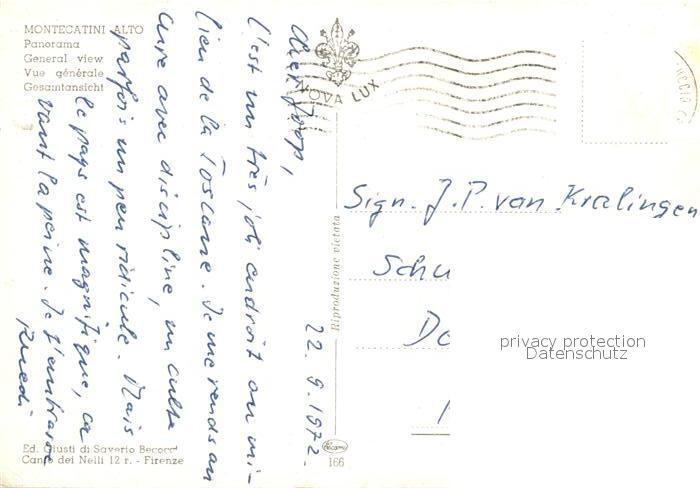 MONTECATINI ALTO
Panorama
General view
Vue générale
Gesamtansicht
NOVA LUX
22.9.1972.
Cher Joop,
C'est un très joli endroit au mi-
lieu de la Toscane. Je me rends au
cure avec discipline, un culte
parfois un peu ridicule. Mais
le pays est magnifique, ca
vaut la peine. Je t'embrasse
Ruedi
Sign. J. P. van Kralingen
Schu
Do
privacy protection
Datenschutz
Riproduzione vietata
166
Ed. Giusti di Saverio Becocci
Canto dei Nelli 12 r. - Firenze